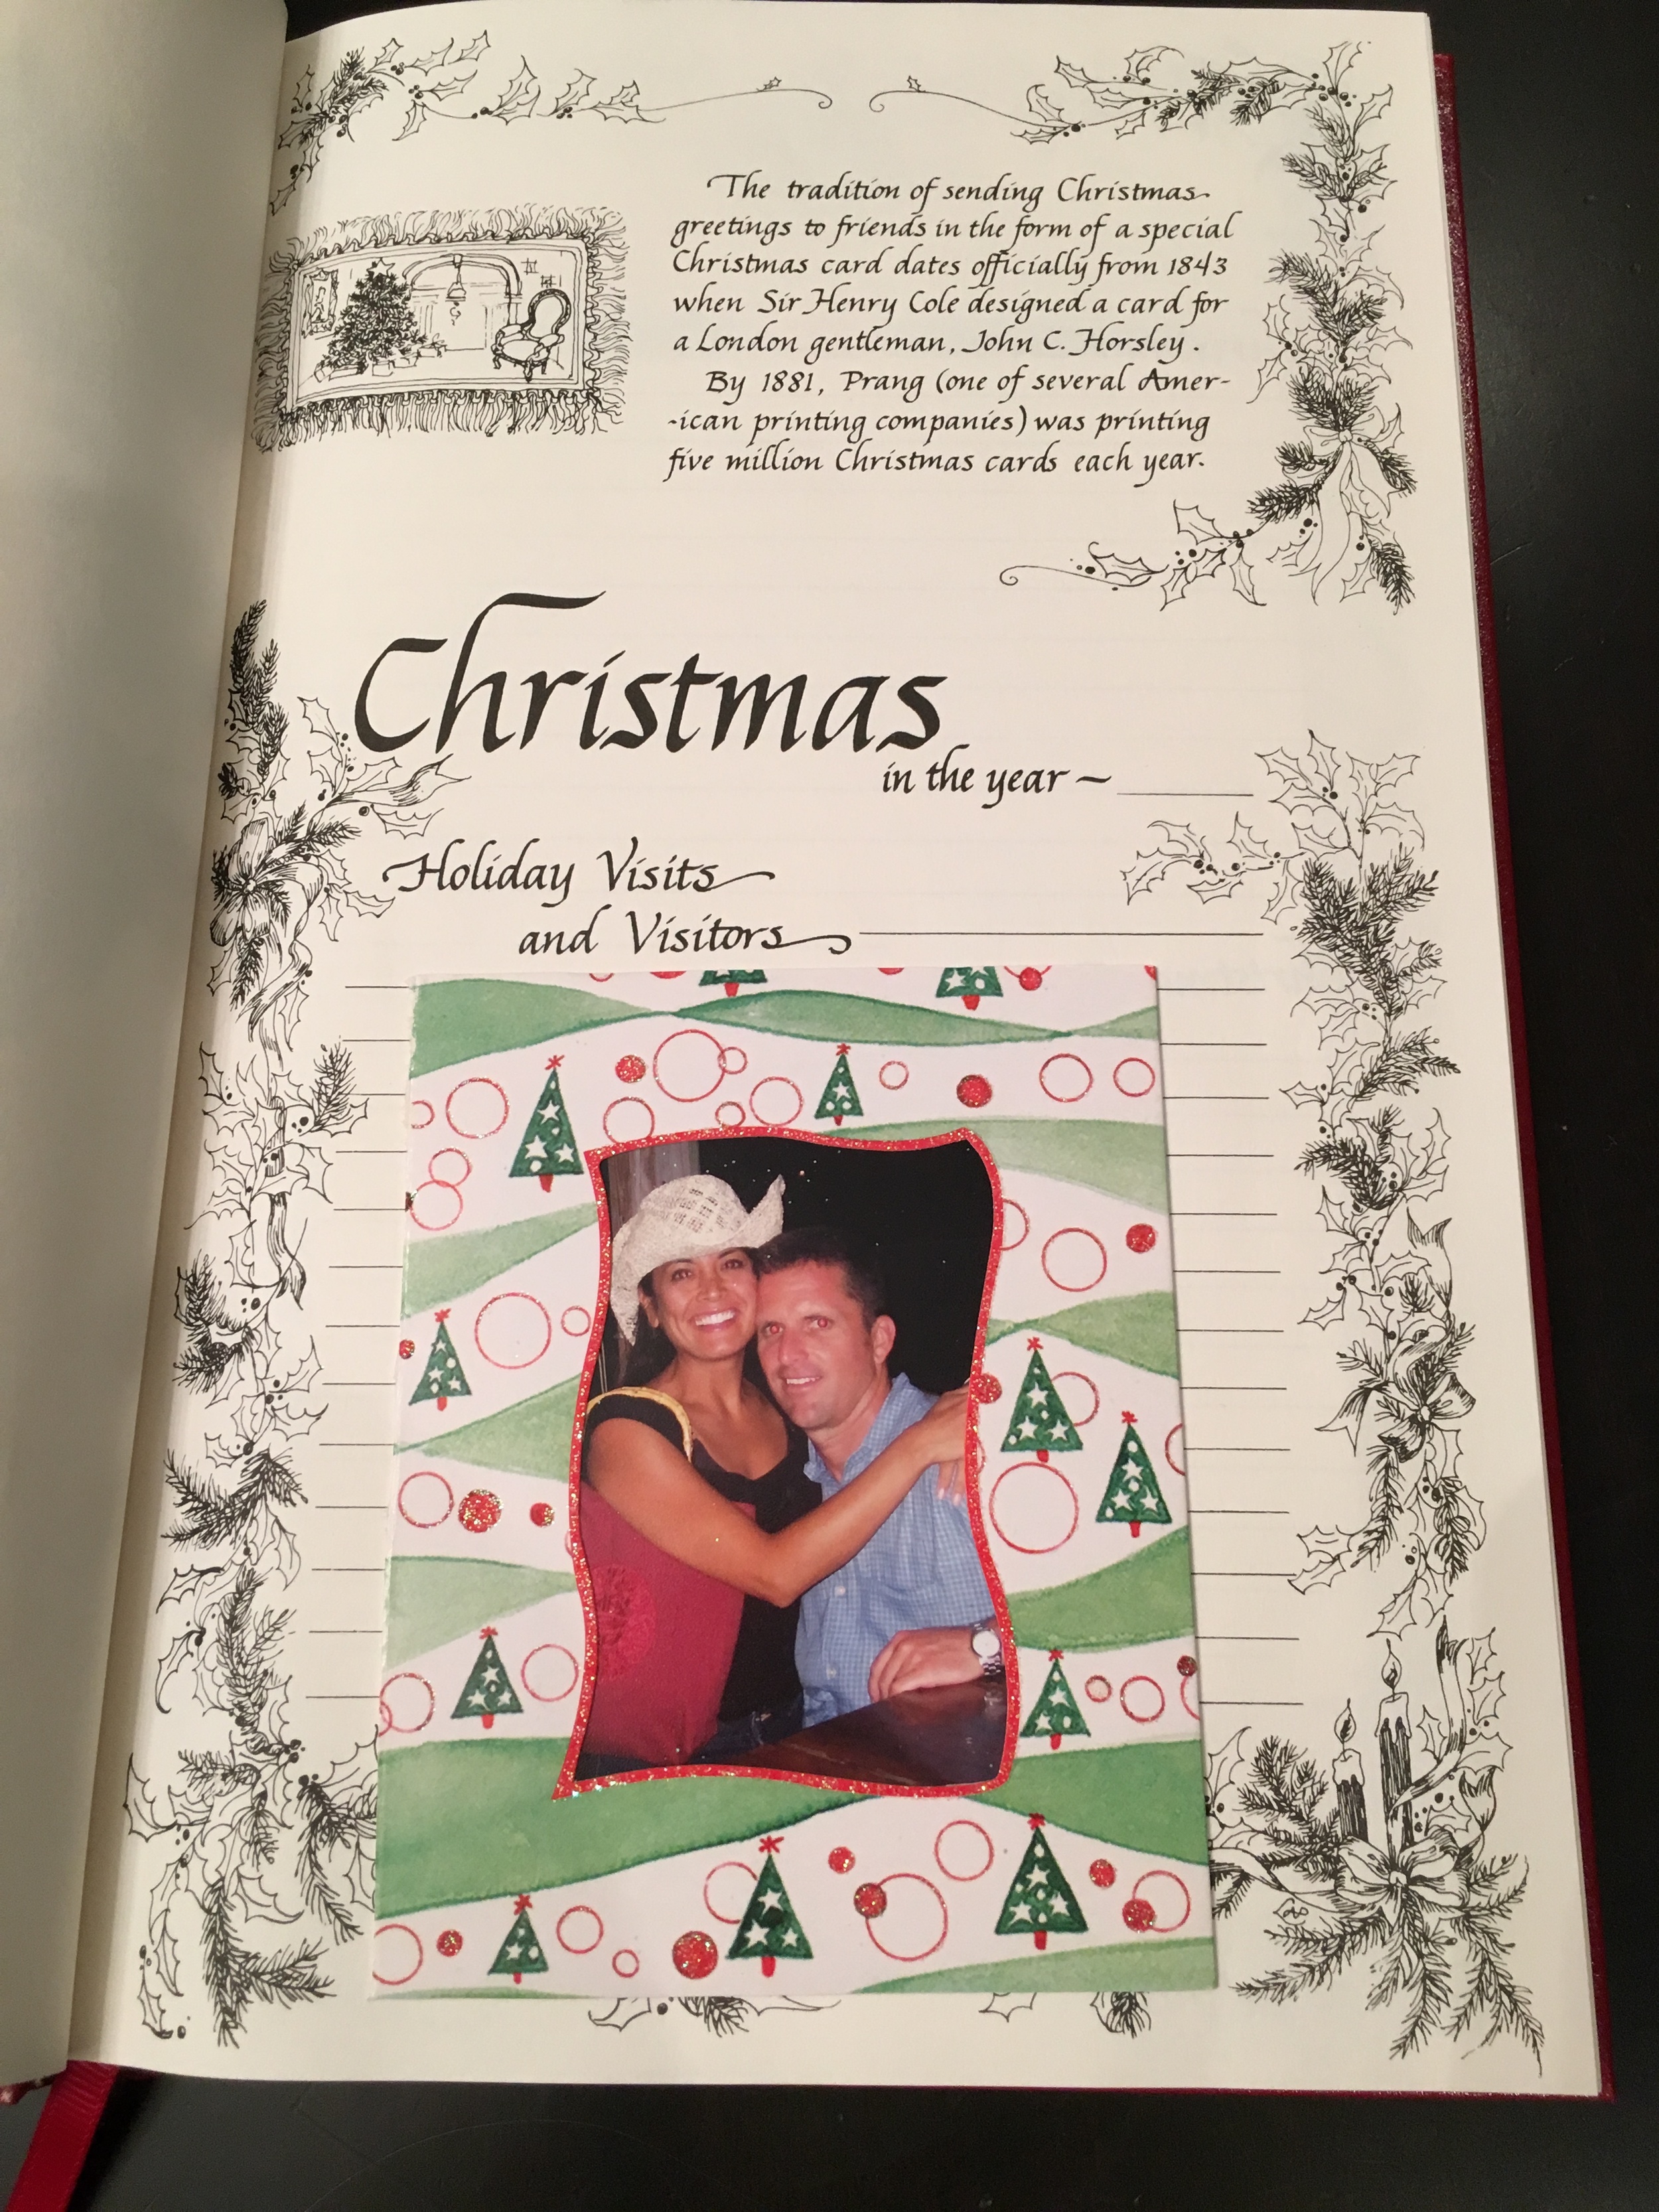 The tradition of sending Christmas
greetings to friends in the form of a special
Christmas card dates officially from 1843
when Sir Henry Cole designed a card for
a London gentleman, John C. Horsley.
By 1881, Prang (one of several Amer-
-ican printing companies) was printing
five million Christmas cards each year.
Christmas
in the year ~
Holiday Visits
and Visitors